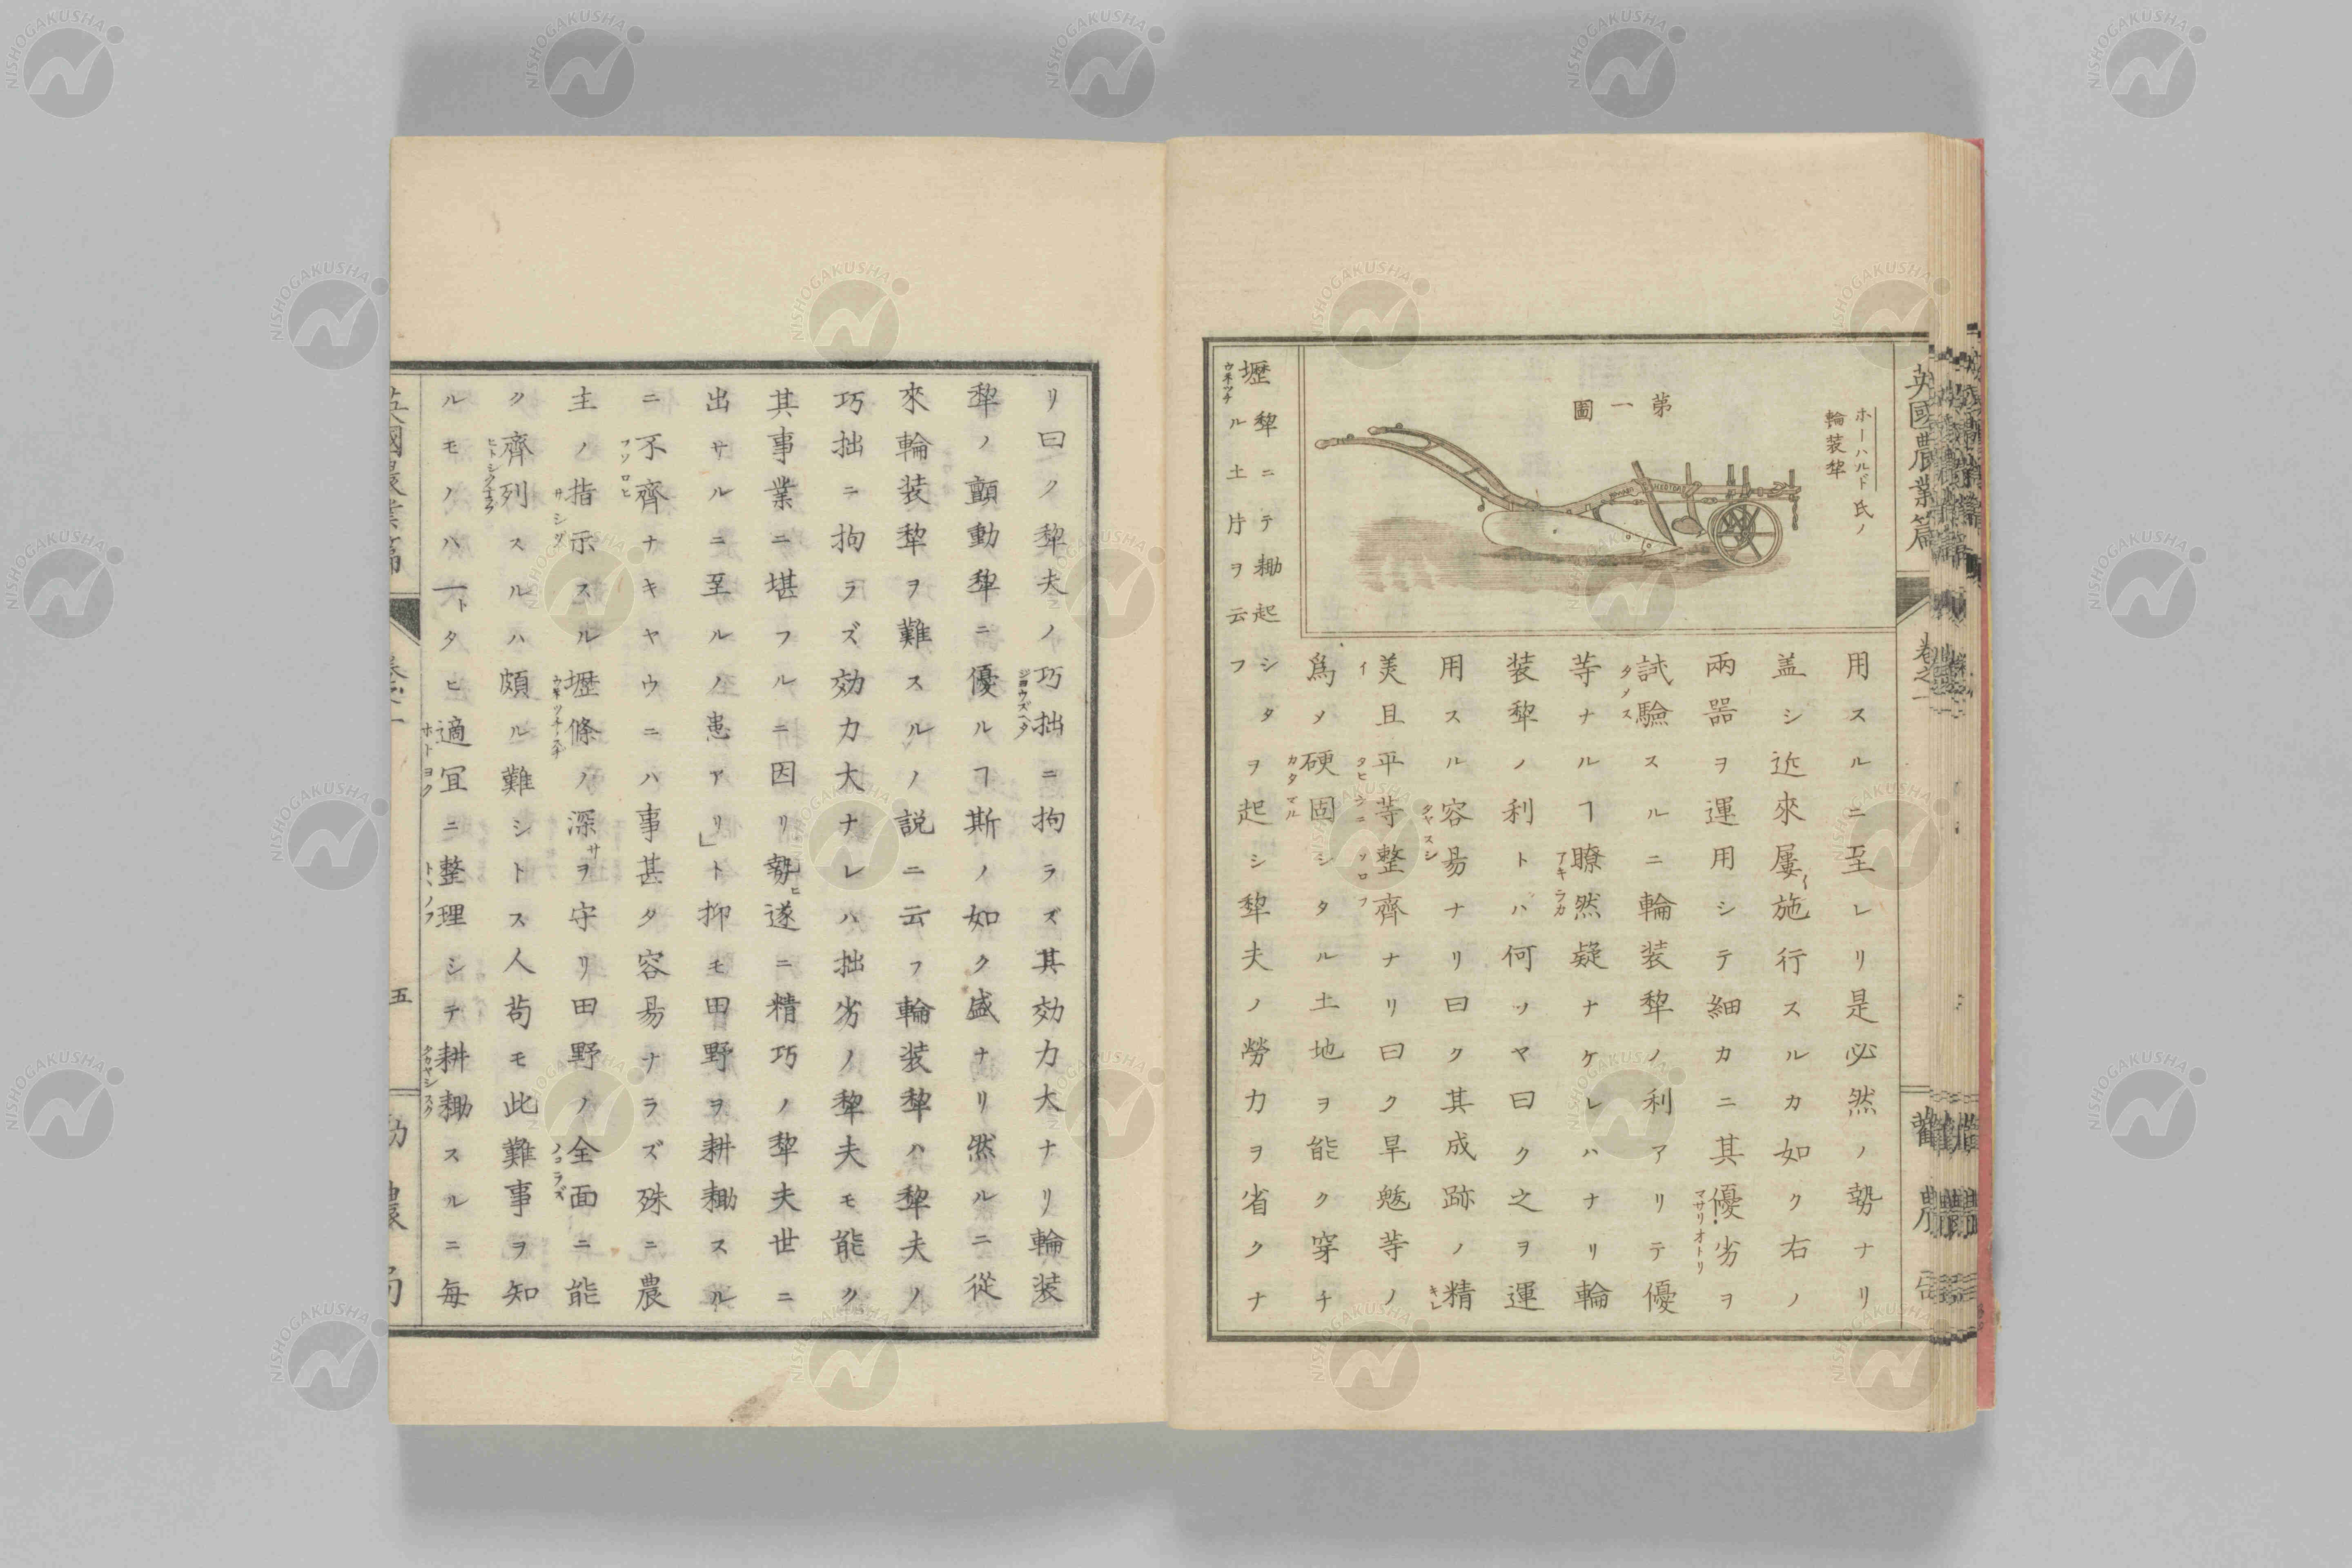 英國農業篇
卷之一
勸農局
ホーハルド氏ノ
輪装犂
第一圖
用スルニ至レリ是必然ノ勢ナリ
盖シ近來屢〻施行スルカ如ク右ノ
兩器ヲ運用シテ細カニ其優劣ヲ
マサリオトリ
試驗スルニ輪装犂ノ利アリテ優
タメス
等ナルヿ瞭然疑ナケレハナリ輪
アキラカ
装犂ノ利トハ何ソヤ曰ク之ヲ運
用スル容易ナリ曰ク其成跡ノ精
タヤスシ
キレ
美且平等整齊ナリ曰ク旱魃等ノ
イ
タヒラニソロフ
爲メ硬固シタル土地ヲ能ク穿チ
カタマル
壢犂ニテ耡起シタル土片ヲ云フヲ起シ犂夫ノ勞力ヲ省クナ
ウネツチ
リ曰ク犂夫ノ巧拙ニ拘ラズ其効力大ナリ輪装
ジヨウズヘタ
犂ノ顫動犂ニ優ルヿ斯ノ如ク盛ナリ然ルニ從
來輪装犂ヲ難スルノ説ニ云フ輪装犂ハ犂夫ノ
巧拙ニ拘ラズ効力大ナレハ拙劣ノ犂夫モ能ク
其事業ニ堪フルニ因リ勢ヒ遂ニ精巧ノ犂夫世ニ
出サルニ至ルノ患アリ」ト抑モ田野ヲ耕耡スル
ニ不齊ナキヤウニハ事甚タ容易ナラズ殊ニ農
フソロヒ
主ノ指示スル壢條ノ深サヲ守リ田野ノ全面ニ能
サシヅ
ウネツチノスヂ
ノコラズ
ク齊列スルハ頗ル難シトス人苟モ此難事ヲ知
ルモノハ一トタヒ適宜ニ整理シテ耕耡スルニ每
ホドヨク
トヽノフ
タガヤシスク
英國農業篇
卷之一
五
勸農局